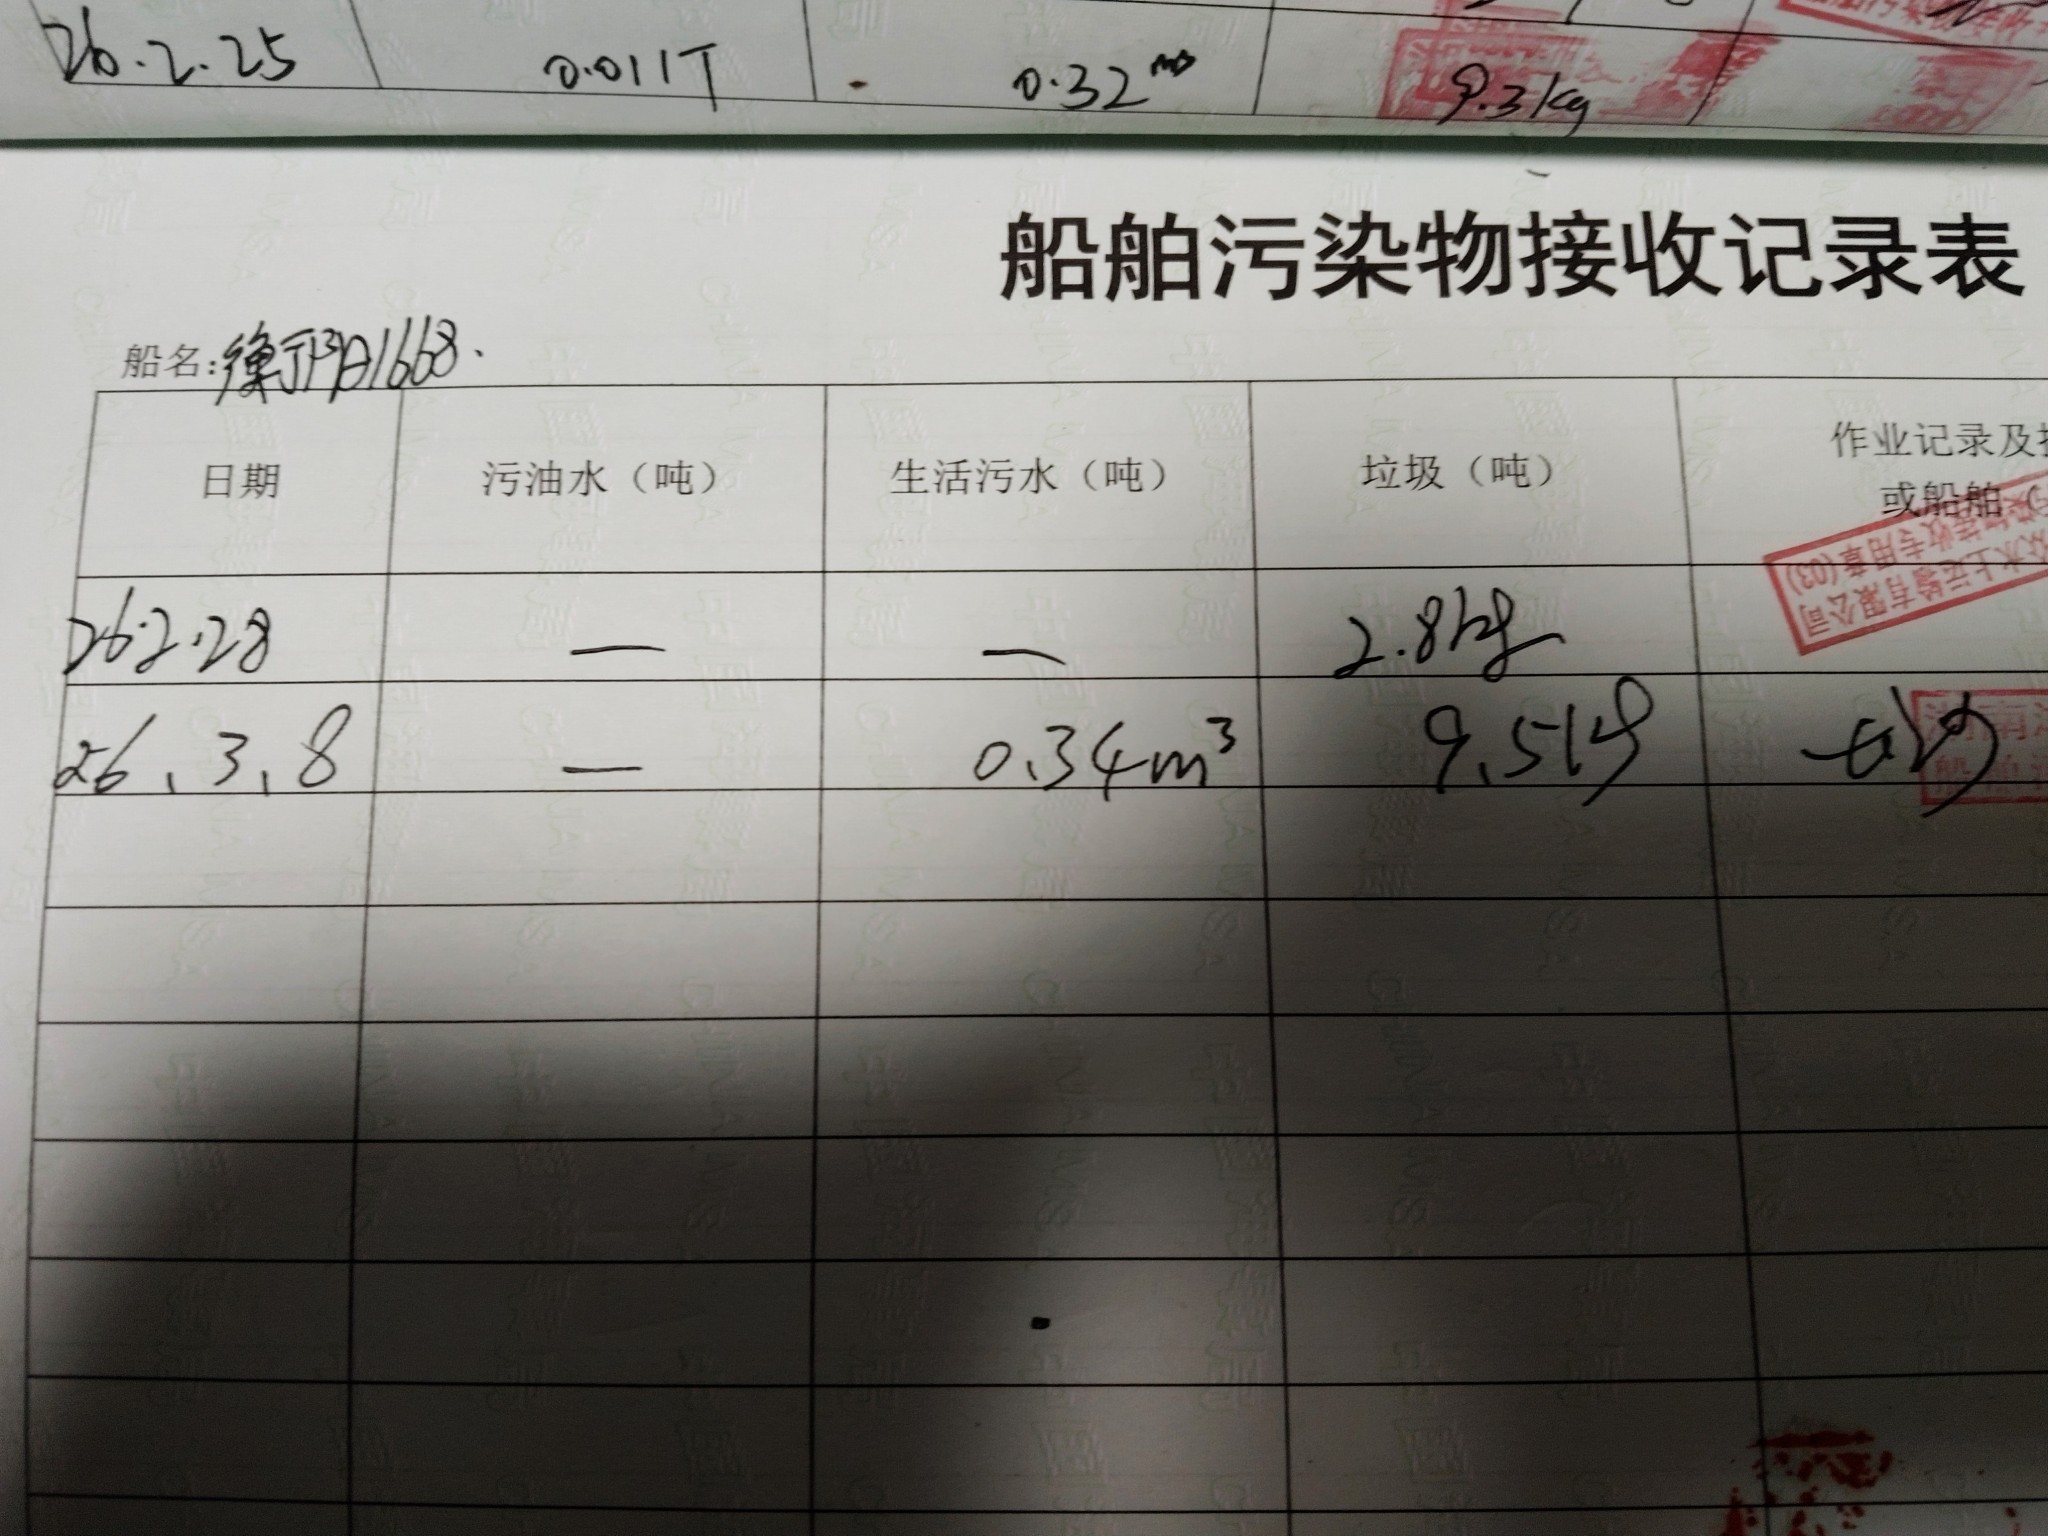 26.2.25 0.011T 0.32 m3 9.3kg
船舶污染物接收记录表
船名:衡阳1668.
日期 污油水（吨） 生活污水（吨） 垃圾（吨） 作业记录及
或船舶
水上运输有限公司
接收专用章(03)
26.2.28 — — 2.8kg
26.3.8 — 0.34m³ 9.5kg